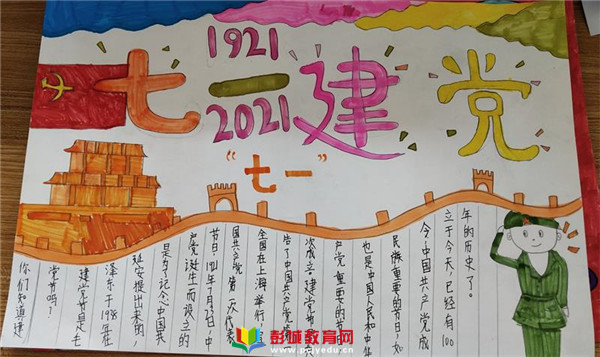 1921
七一建党
2021
“七一”
你们知道建
党节吗？
建党节是毛
泽东于1938年在
延安提出来的，
是为了纪念中国共
产党诞生而设立的
节日，1921年7月23日中
国共产党第一次代表
全国在上海举行
告了中国共产党
次成立，建党节
产党重要的节
也是中国人民和中华
民族重要的节日，如
今，中国共产党成
立于今天，已经有100
年的历史了。
彭城教育网
www.pcjyedu.cn